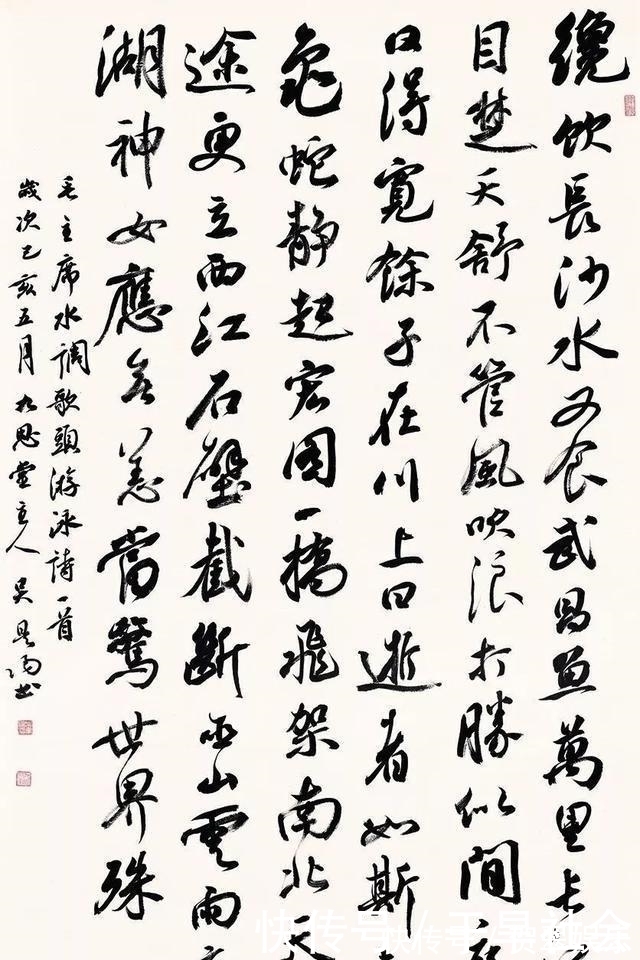 纔飲長沙水又食武昌魚萬里長
目楚天舒不管風吹浪打勝似間
日得寬餘子在川上曰逝者如斯
龜蛇靜起宏圖一橋飛架南北天
途更立西江石壁截斷巫山雲雨
湖神女應無恙當驚世界殊
毛主席水調歌頭游泳詩一首
歲次己亥五月九思堂主人吴書
快传号